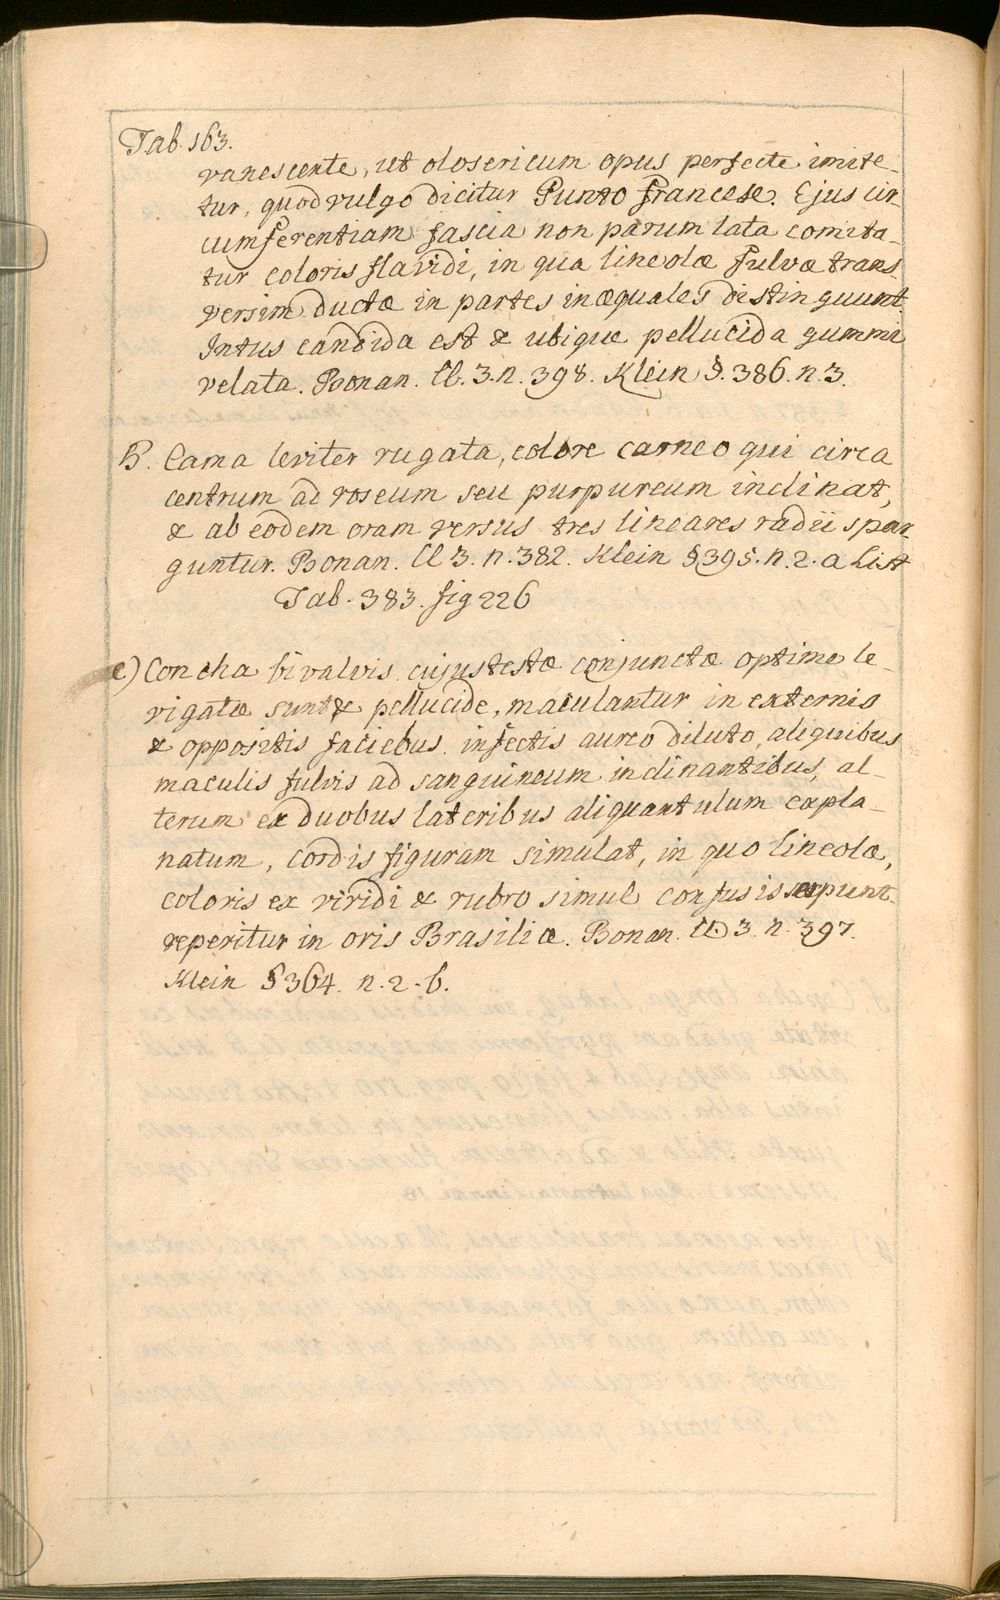 Tab. 163.
vanescente, ut olosericum opus perfecte imite-
tur, quod vulgo dicitur Punto francese. Ejus cir-
cumferentiam fascia non parum lata comita-
tur coloris flavidi, in qua lineolæ fulvæ trans-
versim ductæ in partes inæquales distinguunt.
Intus candida est & ubique pellucida gummi
velata. Bonan. Cl. 3. n. 398. Klein §. 386. n. 3.
B. Cama leviter rugata, colore carneo qui circa
centrum ad roseum seu purpureum inclinat,
& ab eodem oram versus tres lineares radii spar-
guntur. Bonan. Cl 3. n. 382. Klein § 395. n. 2. a List
Tab. 383. fig 226
c) Concha bivalvis cujus testæ conjunctæ optime le-
vigatæ sunt & pellucide, maculantur in externis
& oppositis faciebus infectis aureo diluto, aliquibus
maculis fulvis ad sanguineum inclinantibus, al-
terum ex duobus lateribus aliquantulum expla-
natum, cordis figuram simulat, in quo lineolæ,
coloris ex viridi & rubro simul confusis serpunt.
reperitur in oris Brasiliæ. Bonan. Cl. 3. n. 397.
Klein § 364. n. 2. b.